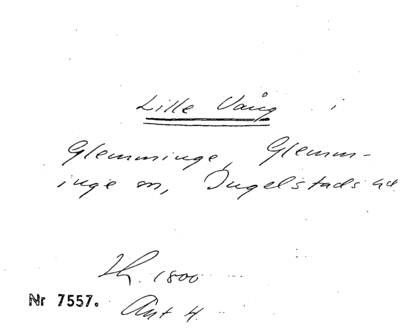 Lille Vång i
Glemminge, Glemm-
inge sn, Ingelstads hd.
Lh. 1800
Nr 7557. Ant H.